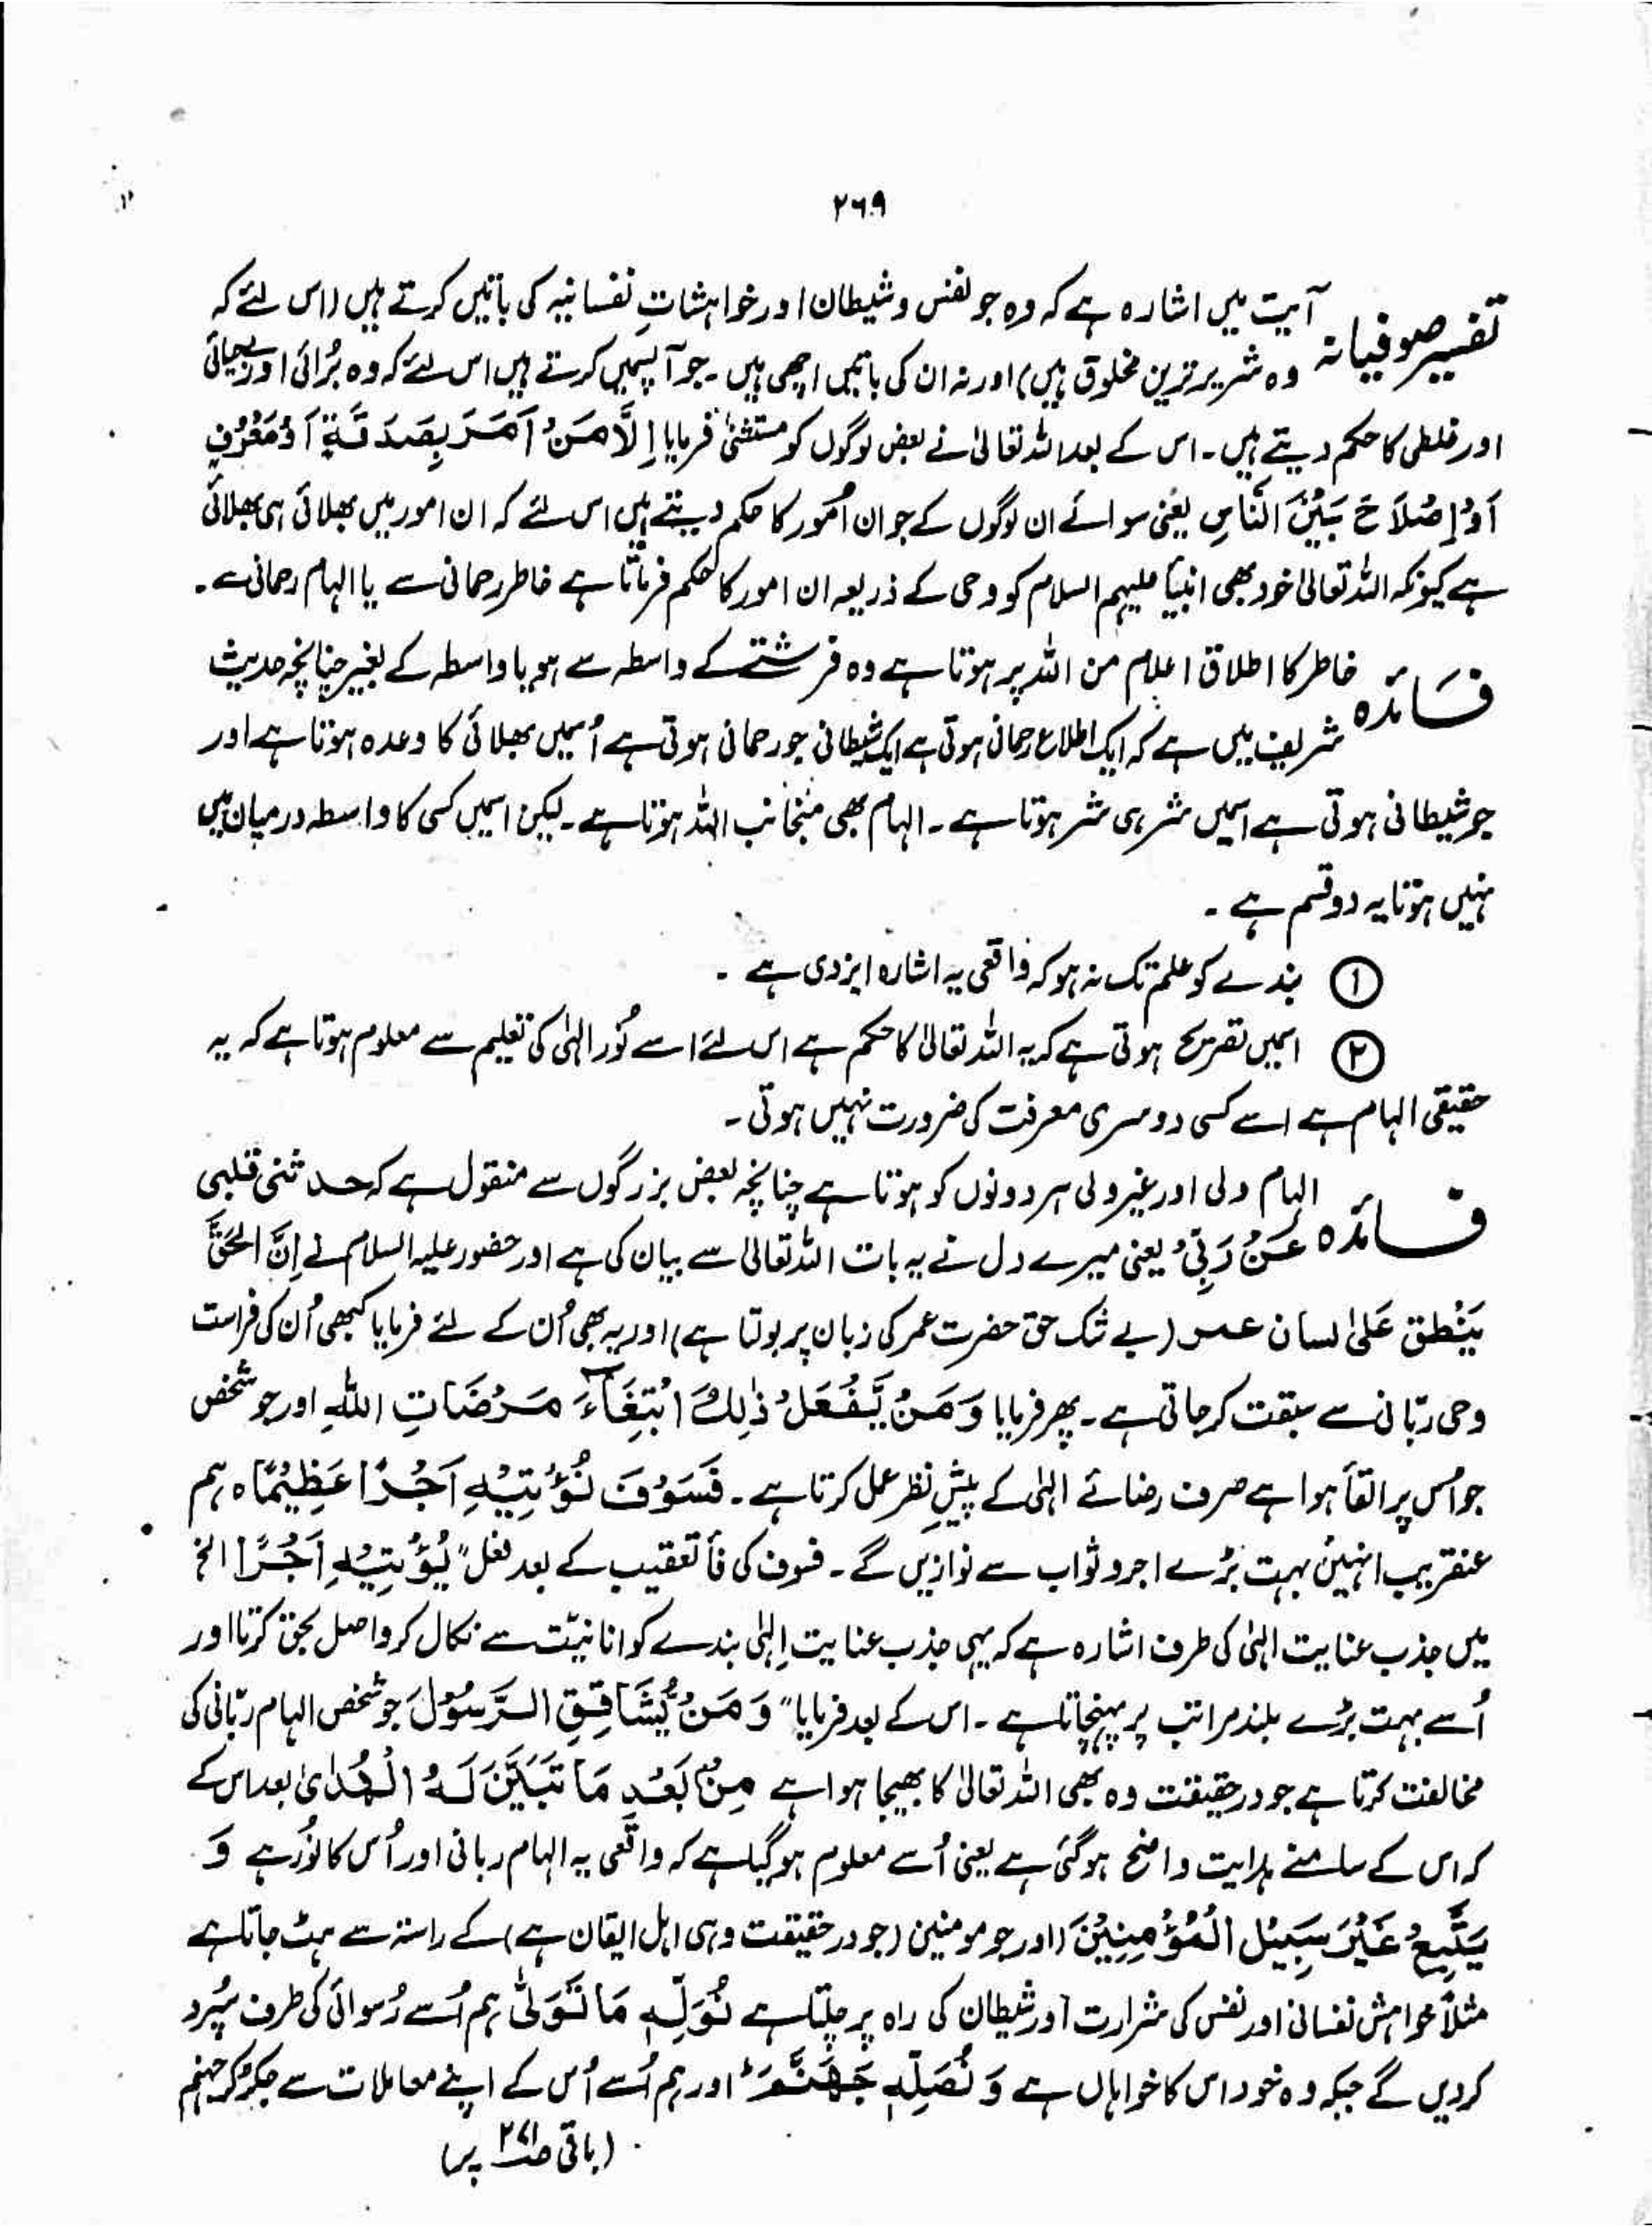 ۲۶۹
تفسیر صوفیانہ آیت میں اشارہ ہے کہ وہ جو نفس و شیطان اور خواہشاتِ نفسانیہ کی باتیں کرتے ہیں (اس لئے کہ
وہ شریر ترین مخلوق ہیں) اور نہ ان کی باتیں اچھی ہیں ۔ جو آپسمیں کرتے ہیں اس لئے کہ وہ بُرائی اور بیحیائی
اور غلطی کا حکم دیتے ہیں ۔ اس کے بعد اللہ تعالیٰ نے بعض لوگوں کو مستثنیٰ فرمایا اِلَّا مَنْ اَمَرَ بِصَدَقَةٍ اَوْ مَعْرُوْفٍ
اَوْ اِصْلَاحٍ بَیْنَ النَّاسِ یعنی سوائے ان لوگوں کے جو ان اُمور کا حکم دیتے ہیں اس لئے کہ ان امور میں بھلائی ہی بھلائی
ہے کیونکہ اللہ تعالیٰ خود بھی انبیأ علیہم السلام کو وحی کے ذریعہ ان امور کا حکم فرماتا ہے خاطر رحمانی سے یا الہام رحمانی سے ۔
فَسائدہ خاطر کا اطلاق اعلام من اللہ پر ہوتا ہے وہ فرشتے کے واسطہ سے ہو یا واسطہ کے بغیر چنانچہ حدیث
شریف میں ہے کہ ایک اطلاع رحمانی ہوتی ہے ایک شیطانی جو رحمانی ہوتی ہے اُسمیں بھلائی کا وعدہ ہوتا ہے اور
جو شیطانی ہوتی ہے اسمیں شر ہی شر ہوتا ہے ۔ الہام بھی منجانب اللہ ہوتا ہے ۔ لیکن اسمیں کسی کا واسطہ درمیان میں
نہیں ہوتا یہ دو قسم ہے ۔
① بندے کو علم تک نہ ہو کہ واقعی یہ اشارہ ایزدی ہے ۔
② اسمیں تصریح ہوتی ہے کہ یہ اللہ تعالیٰ کا حکم ہے اس لئے اسے نُور الہٰی کی تعلیم سے معلوم ہوتا ہے کہ یہ
حقیقی الہام ہے اسے کسی دوسری معرفت کی ضرورت نہیں ہوتی ۔
فسائدہ الہام ولی اور غیر ولی ہر دونوں کو ہوتا ہے چنانچہ بعض بزرگوں سے منقول ہے کہ حدثنی قلبی
عَنْ رَبِّیْ یعنی میرے دل نے یہ بات اللہ تعالیٰ سے بیان کی ہے اور حضور علیہ السلام نے اِنَّ الحَقَّ
یَنْطق عَلیٰ لسان عمر (بے شک حق حضرت عمر کی زبان پر بولتا ہے) اور یہ بھی اُن کے لئے فرمایا کبھی اُن کی فراست
وحی ربّانی سے سبقت کر جاتی ہے ۔ پھر فرمایا وَ مَنْ یَّفْعَلْ ذٰلِكَ ابْتِغَآءَ مَرْضَاتِ اللّٰہِ اور جو شخص
جو اُس پر القأ ہوا ہے صرف رضائے الہٰی کے پیشِ نظر عمل کرتا ہے ۔ فَسَوْفَ نُؤْتِیْہِ اَجْرًا عَظِیْمًا ہ ہم
عنقریب انہیں بہت بڑے اجر و ثواب سے نوازیں گے ۔ فسوف کی فأ تعقیب کے بعد فعل ″ یُؤْتِیْہِ اَجْرًا الخ
میں جذب عنایت الہٰی کی طرف اشارہ ہے کہ یہی جذب عنایت اِلہٰی بندے کو انانیّت سے نکال کر واصل بحق کرتا اور
اُسے بہت بڑے بلند مراتب پر پہنچاتا ہے ۔ اس کے بعد فرمایا ″ وَ مَنْ یُّشَاقِقِ الرَّسُوْلَ جو شخص الہام ربّانی کی
مخالفت کرتا ہے جو در حقیقت وہ بھی اللہ تعالیٰ کا بھیجا ہوا ہے مِنْۢ بَعْدِ مَا تَبَیَّنَ لَہُ الْھُدٰی بعد اس کے
کہ اس کے سامنے ہدایت واضح ہو گئی ہے یعنی اُسے معلوم ہو گیا ہے کہ واقعی یہ الہام ربانی اور اُس کا نُور ہے وَ
یَتَّبِعْ غَیْرَ سَبِیْلِ الْمُؤْمِنِیْنَ (اور جو مومنین (جو در حقیقت وہی اہل ایقان ہے) کے راستہ سے ہٹ جاتا ہے
مثلاً خواہش نفسانی اور نفس کی شرارت اور شیطان کی راہ پر چلتا ہے نُوَلِّہٖ مَا تَوَلّٰی ہم اُسے رُسوائی کی طرف سپُرد
کردیں گے جبکہ وہ خود اس کا خواہاں ہے وَ نُصْلِہٖ جَھَنَّمَ ؕ اور ہم اُسے اُس کے اپنے معاملات سے جکڑ کر جہنم
(باقی صـ ۲۷۱ پر)